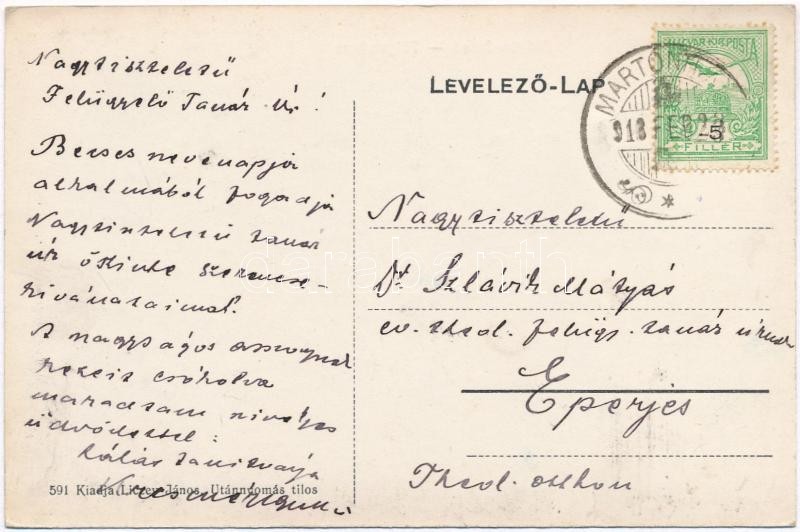 Nagytiszteletű
Felügyelő Tanár Úr!
Becses nevenapja
alkalmából fogadja
Nagytiszteletű tanár
úr őszinte szerencse-
kívánataimat.
A nagyságos asszonynak
kezeit csókolva
maradtam szíves
üdvözlettel:
hálás tanítványa
591 Kiadja Liczey János. Utánnyomás tilos
LEVELEZŐ-LAP
MAGYAR KIR. POSTA
5
FILLÉR
918 FEB 23
Nagytiszteletű
Dr. Szlávik Mátyás
ev. theol. felügy. tanár úrnak
Eperjes
Theol. otthon